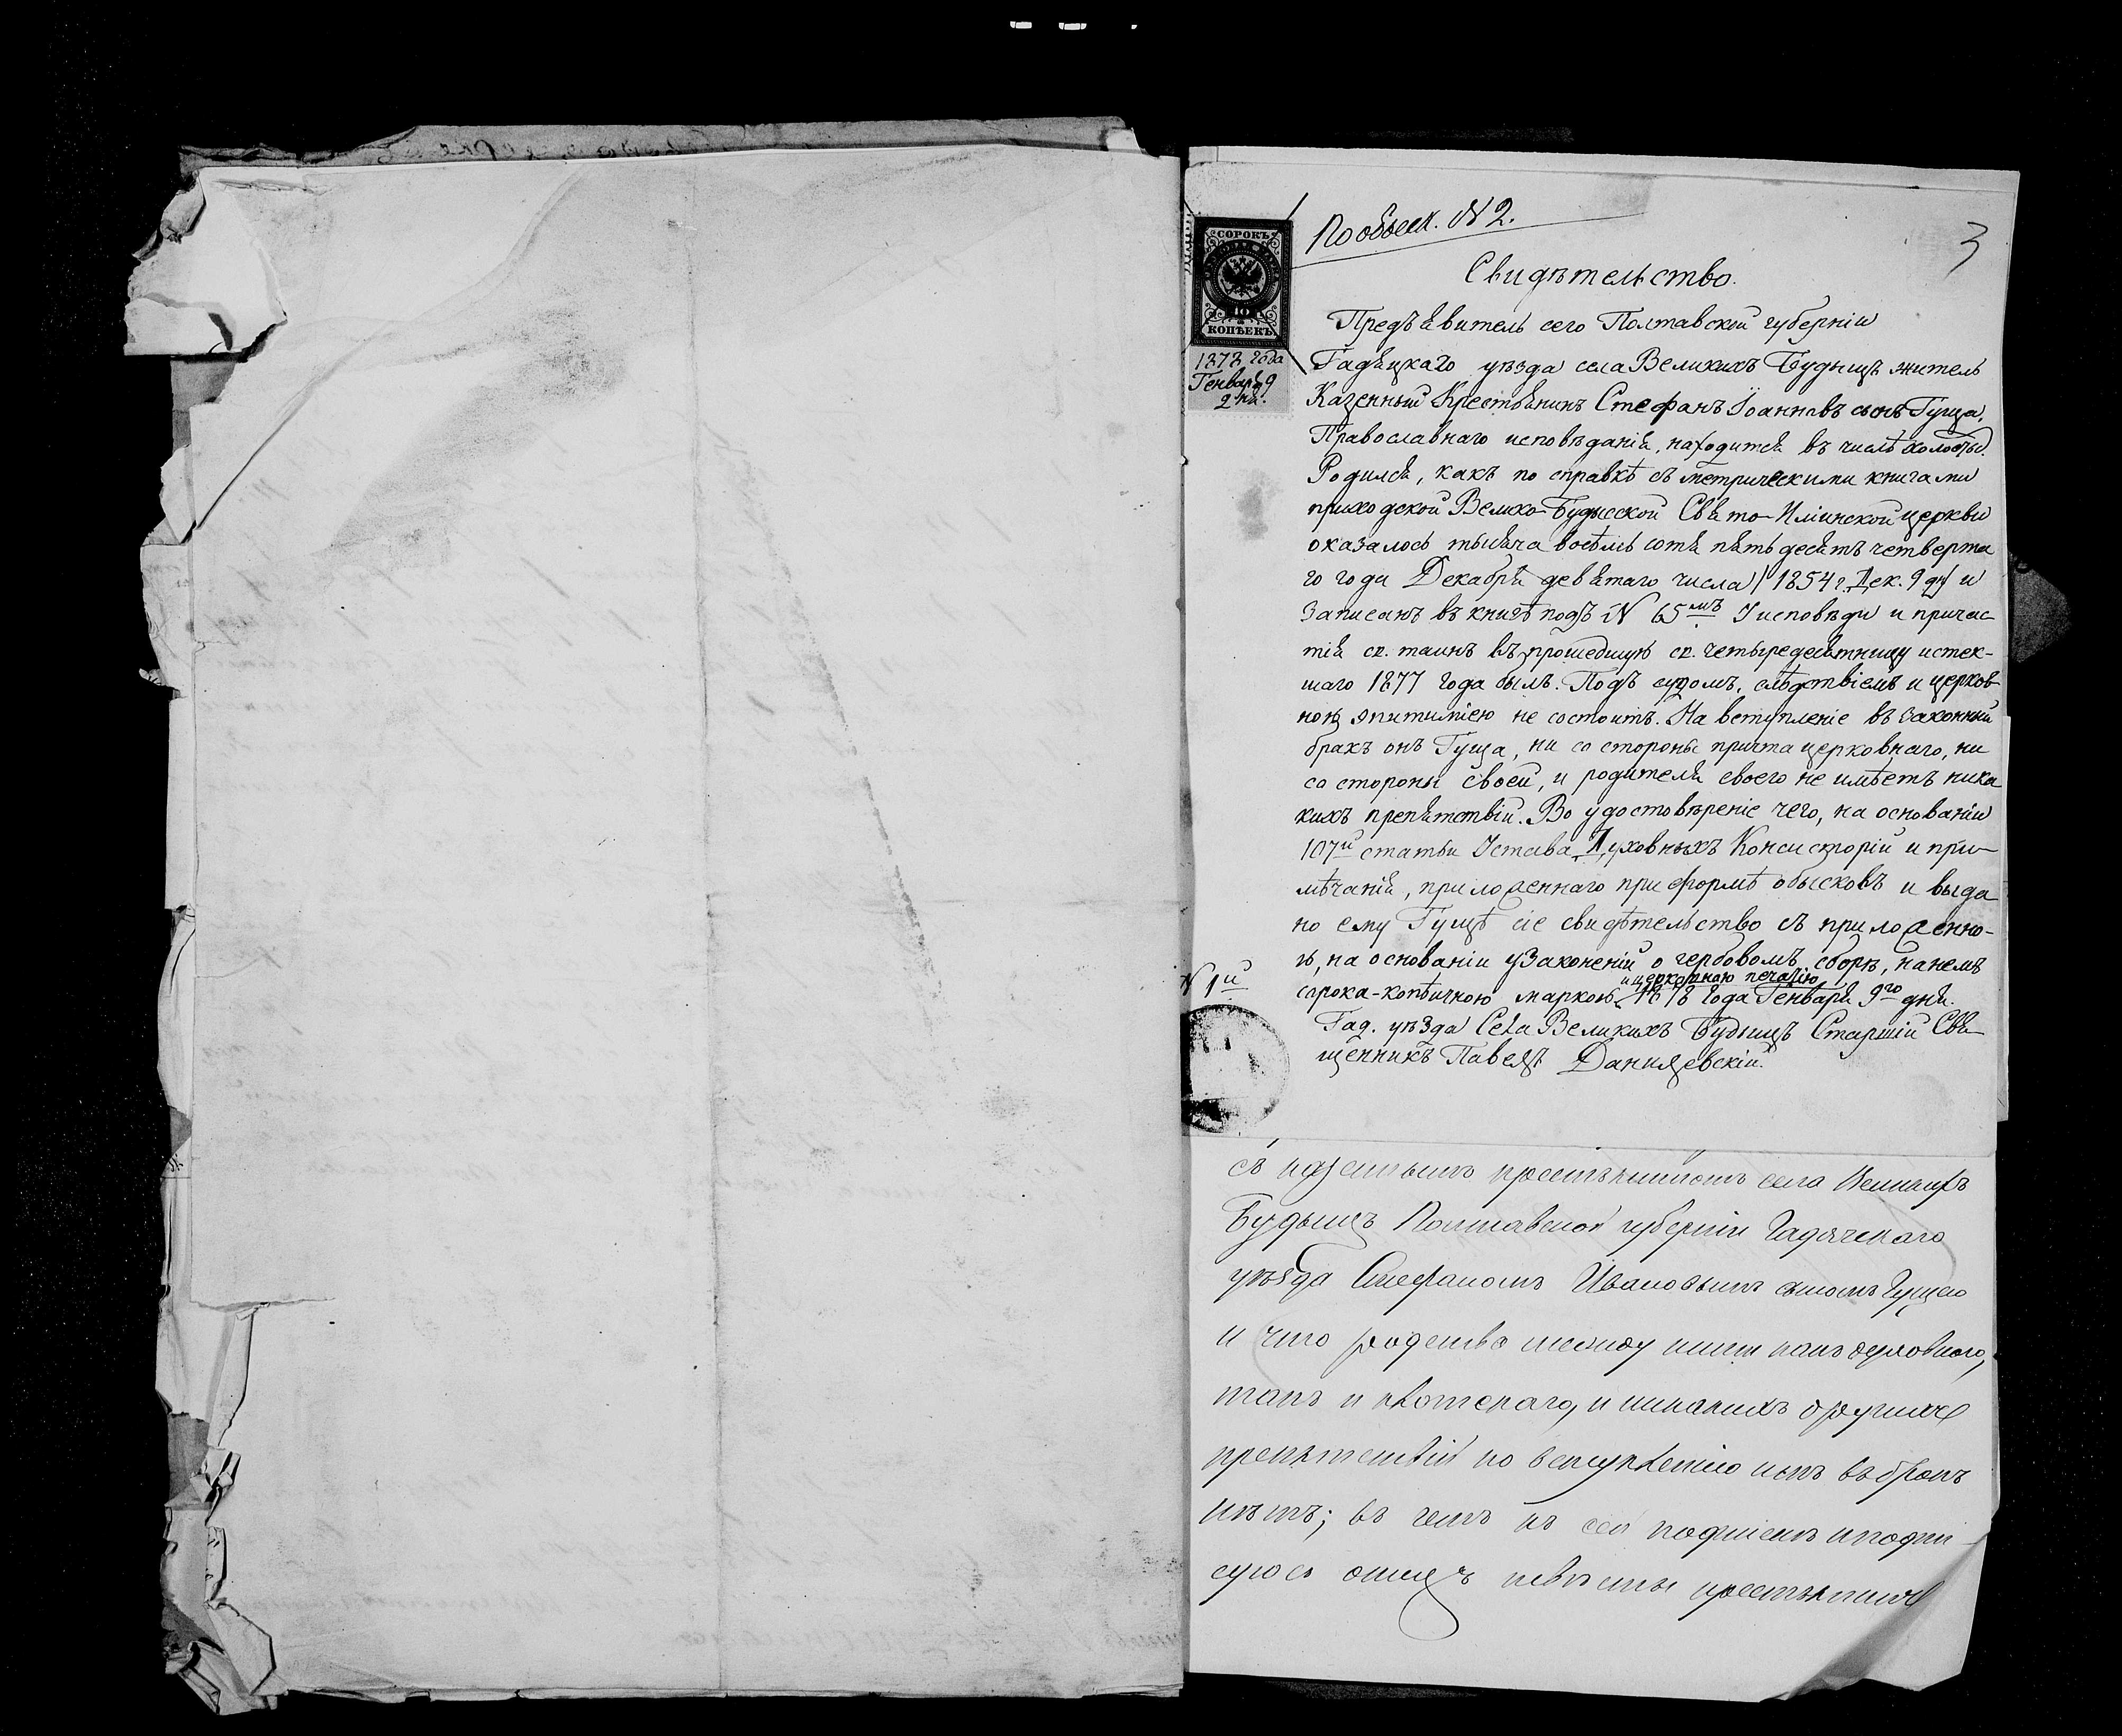 По обыск. № 2.
3
СОРОКЪ
40
КОПѢЕКЪ
1878 года
Генваря 9
дня.
Свидѣтельство.
Предъявитель сего Полтавской губерніи
Гадяцкаго уѣзда села Великихъ Будищъ житель
Казенный Крестьянинъ Стефанъ Іоанновъ сынъ Гуща,
Православнаго исповѣданія, находится въ числѣ холостыхъ.
Родился, какъ по справкѣ съ метрическими книгами
приходской Велико-Будысской Свято-Илiинской церкви
оказалось тысяча восемь сотъ пятьдесятъ четверта
го года Декабря девятаго числа /1854 г. Дек. 9 д/ и
записанъ въ книгѣ подъ № 65мъ У исповѣди и причас
тія св. таинъ въ прошедшую св. четыредесятницу истек-
шаго 1877 года былъ. Подъ судомъ, слѣдствіемъ и церков
ною эпитиміею не состоитъ. На вступленіе въ законный
бракъ онъ Гуща, ни со стороны причта церковнаго, ни
со стороны своей, и родителя своего не имѣетъ ника
кихъ препятствій. Во удостовѣреніе чего, на основаніи
107й статьи Устава Духовныхъ Консисторій и при-
мѣчанія, приложеннаго при формѣ обысковъ и выда
но ему Гущѣ сіе свидѣтельство съ приложенно-
ю, на основаніи узаконеній о гербовомъ сборѣ, на немъ
и церковною печатію
сорока-копѣечною маркою 1878 года Генваря 9го дня.
№ 1й
Гад. уѣзда Села Великихъ Будищъ Старшій Свя-
щенникъ Павелъ Данилевскій.
съ казеннымъ крестьяниномъ села Великихъ
Будищъ Полтавской губерніи Гадячскаго
уѣзда Стефаномъ Ивановымъ сыномъ Гущею
и что родства между ними какъ духовнаго,
такъ и плотскаго, и никакихъ другихъ
препятствій по вступленію ихъ въ бракъ
нѣтъ; въ чемъ къ сей подписке и подпи-
суюсь отецъ невѣсты крестьянинъ